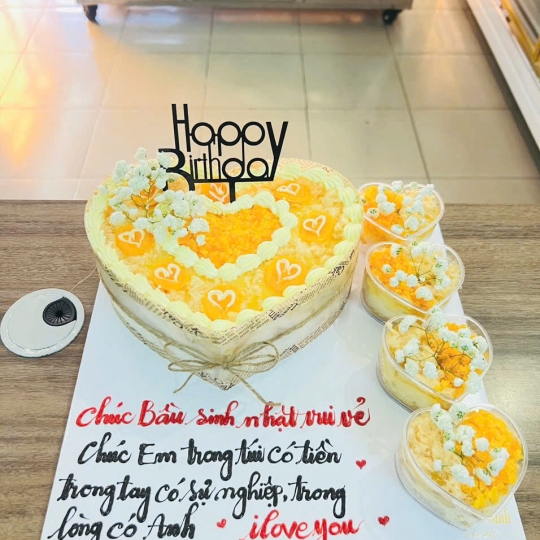 Happy
Birthday
Chúc Bầu sinh nhật vui vẻ
Chúc Em trong túi có tiền
trong tay có sự nghiệp, trong
lòng có Anh i love you